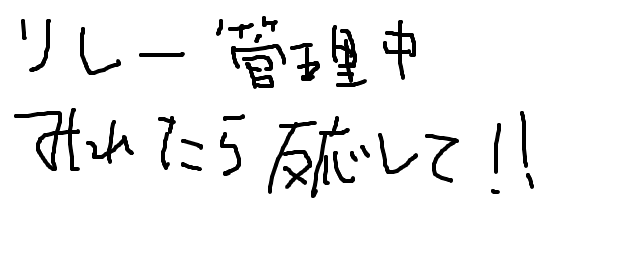 リレー管理中
みれたら反応して!!